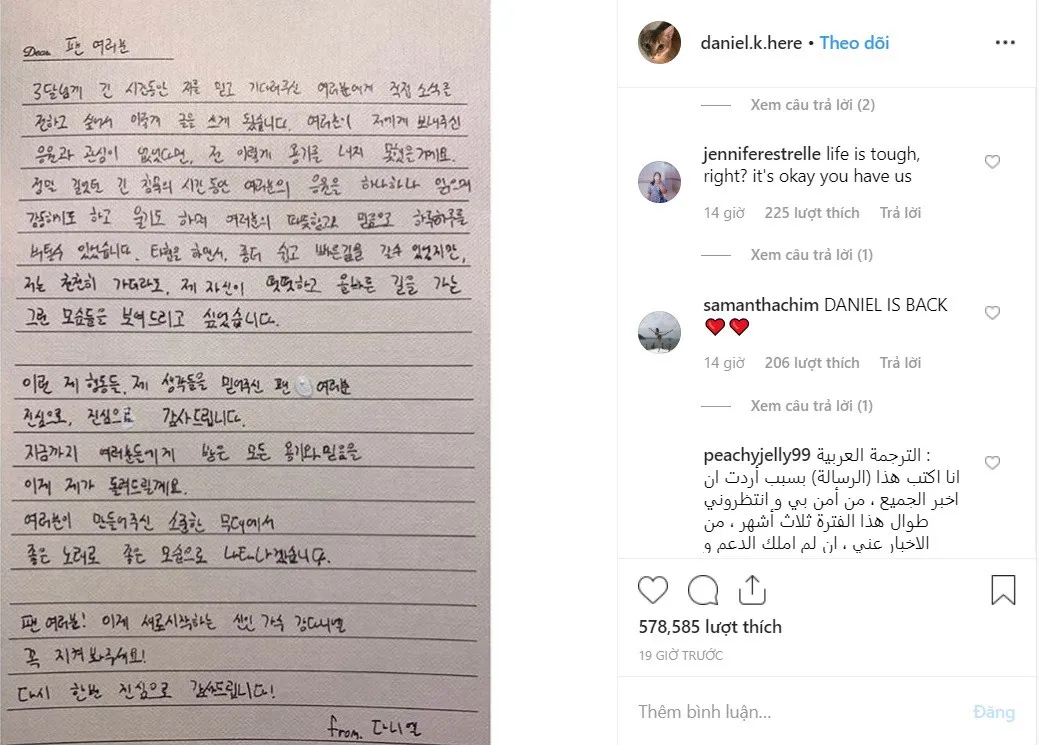 Dear. 팬 여러분
3달넘게 긴 시간동안 저를 믿고 기다려주신 여러분에게 직접 소식을
전하고 싶어서 이렇게 글을 쓰게 됐습니다. 여러분이 저에게 보내주신
응원과 관심이 없었다면, 전 이렇게 용기를 내지 못했을거에요.
정말 길었던 긴 침묵의 시간동안 여러분의 응원을 하나하나 읽으며
감동하기도 하고 울기도 하며 여러분의 따뜻함과 믿음으로 하루하루를
버틸수 있었습니다. 타협을 하면서, 좀더 쉽고 빠른길을 갈수 있었지만,
저는 천천히 가더라도, 제 자신이 떳떳하고 올바른 길을 가는
그런 모습들을 보여드리고 싶었습니다.
이런 제 행동들, 제 생각들을 믿어주신 팬 여러분
진심으로, 진심으로 감사드립니다.
지금까지 여러분들에게 받은 모든 용기와 믿음을
이제 제가 돌려드릴게요.
여러분이 만들어주신 소중한 무대에서
좋은 노래로 좋은 모습으로 나타나겠습니다.
팬 여러분! 이제 새로시작하는 신인 가수 강다니엘
꼭 지켜봐주세요!
다시 한번 진심으로 감사드립니다!
from. 다니엘
daniel.k.here • Theo dõi
Xem câu trả lời (2)
jenniferestrelle life is tough,
right? it's okay you have us
14 giờ 225 lượt thích Trả lời
Xem câu trả lời (1)
samanthachim DANIEL IS BACK
❤️❤️
14 giờ 206 lượt thích Trả lời
Xem câu trả lời (1)
peachyjelly99 الترجمة العربية :
انا اكتب هذا (الرسالة) بسبب أردت ان
اخبر الجميع ، من أمن بي و انتظروني
طوال هذا الفترة ثلاث أشهر ، من
الاخبار عني ، ان لم املك الدعم و
578,585 lượt thích
19 GIỜ TRƯỚC
Thêm bình luận...
Đăng